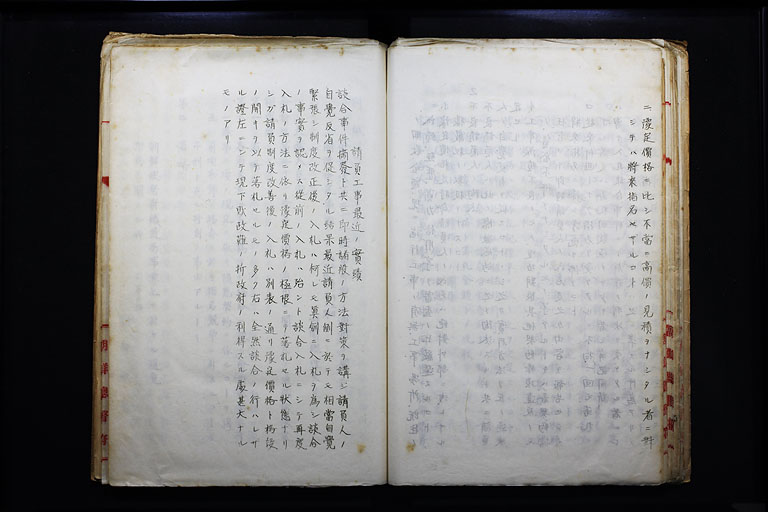 ニ豫定價格ニ比シ不當ニ高價ノ見積ヲナシタル者ニ對
シテハ將來指名セザルコト
請負工事最近ノ實績
談合事件摘發ト共ニ即時諸般ノ方法對策ヲ講ジ請負人ノ
自覺反省ヲ促シタル結果最近請負人側ニ於テモ相當自覺
緊張シ制度改正後ノ入札ハ何レモ眞劍ニ入札ヲ爲シ談合
ノ事實ヲ認メズ從前ノ入札ハ殆ント談合入札ニシテ再度
入札ノ方法ニ依リ豫定價格ノ極限ニテ落札セル狀態ナリ
シガ請負制度改善後ノ入札ハ別表ノ通リ豫定價格ト格段
ノ開キヲ以テ落札セルモノ多ク右ハ全然談合ノ行ハレザ
ル證左ニシテ現下財政難ノ折政府ノ利得スル處甚大ナル
モノアリ